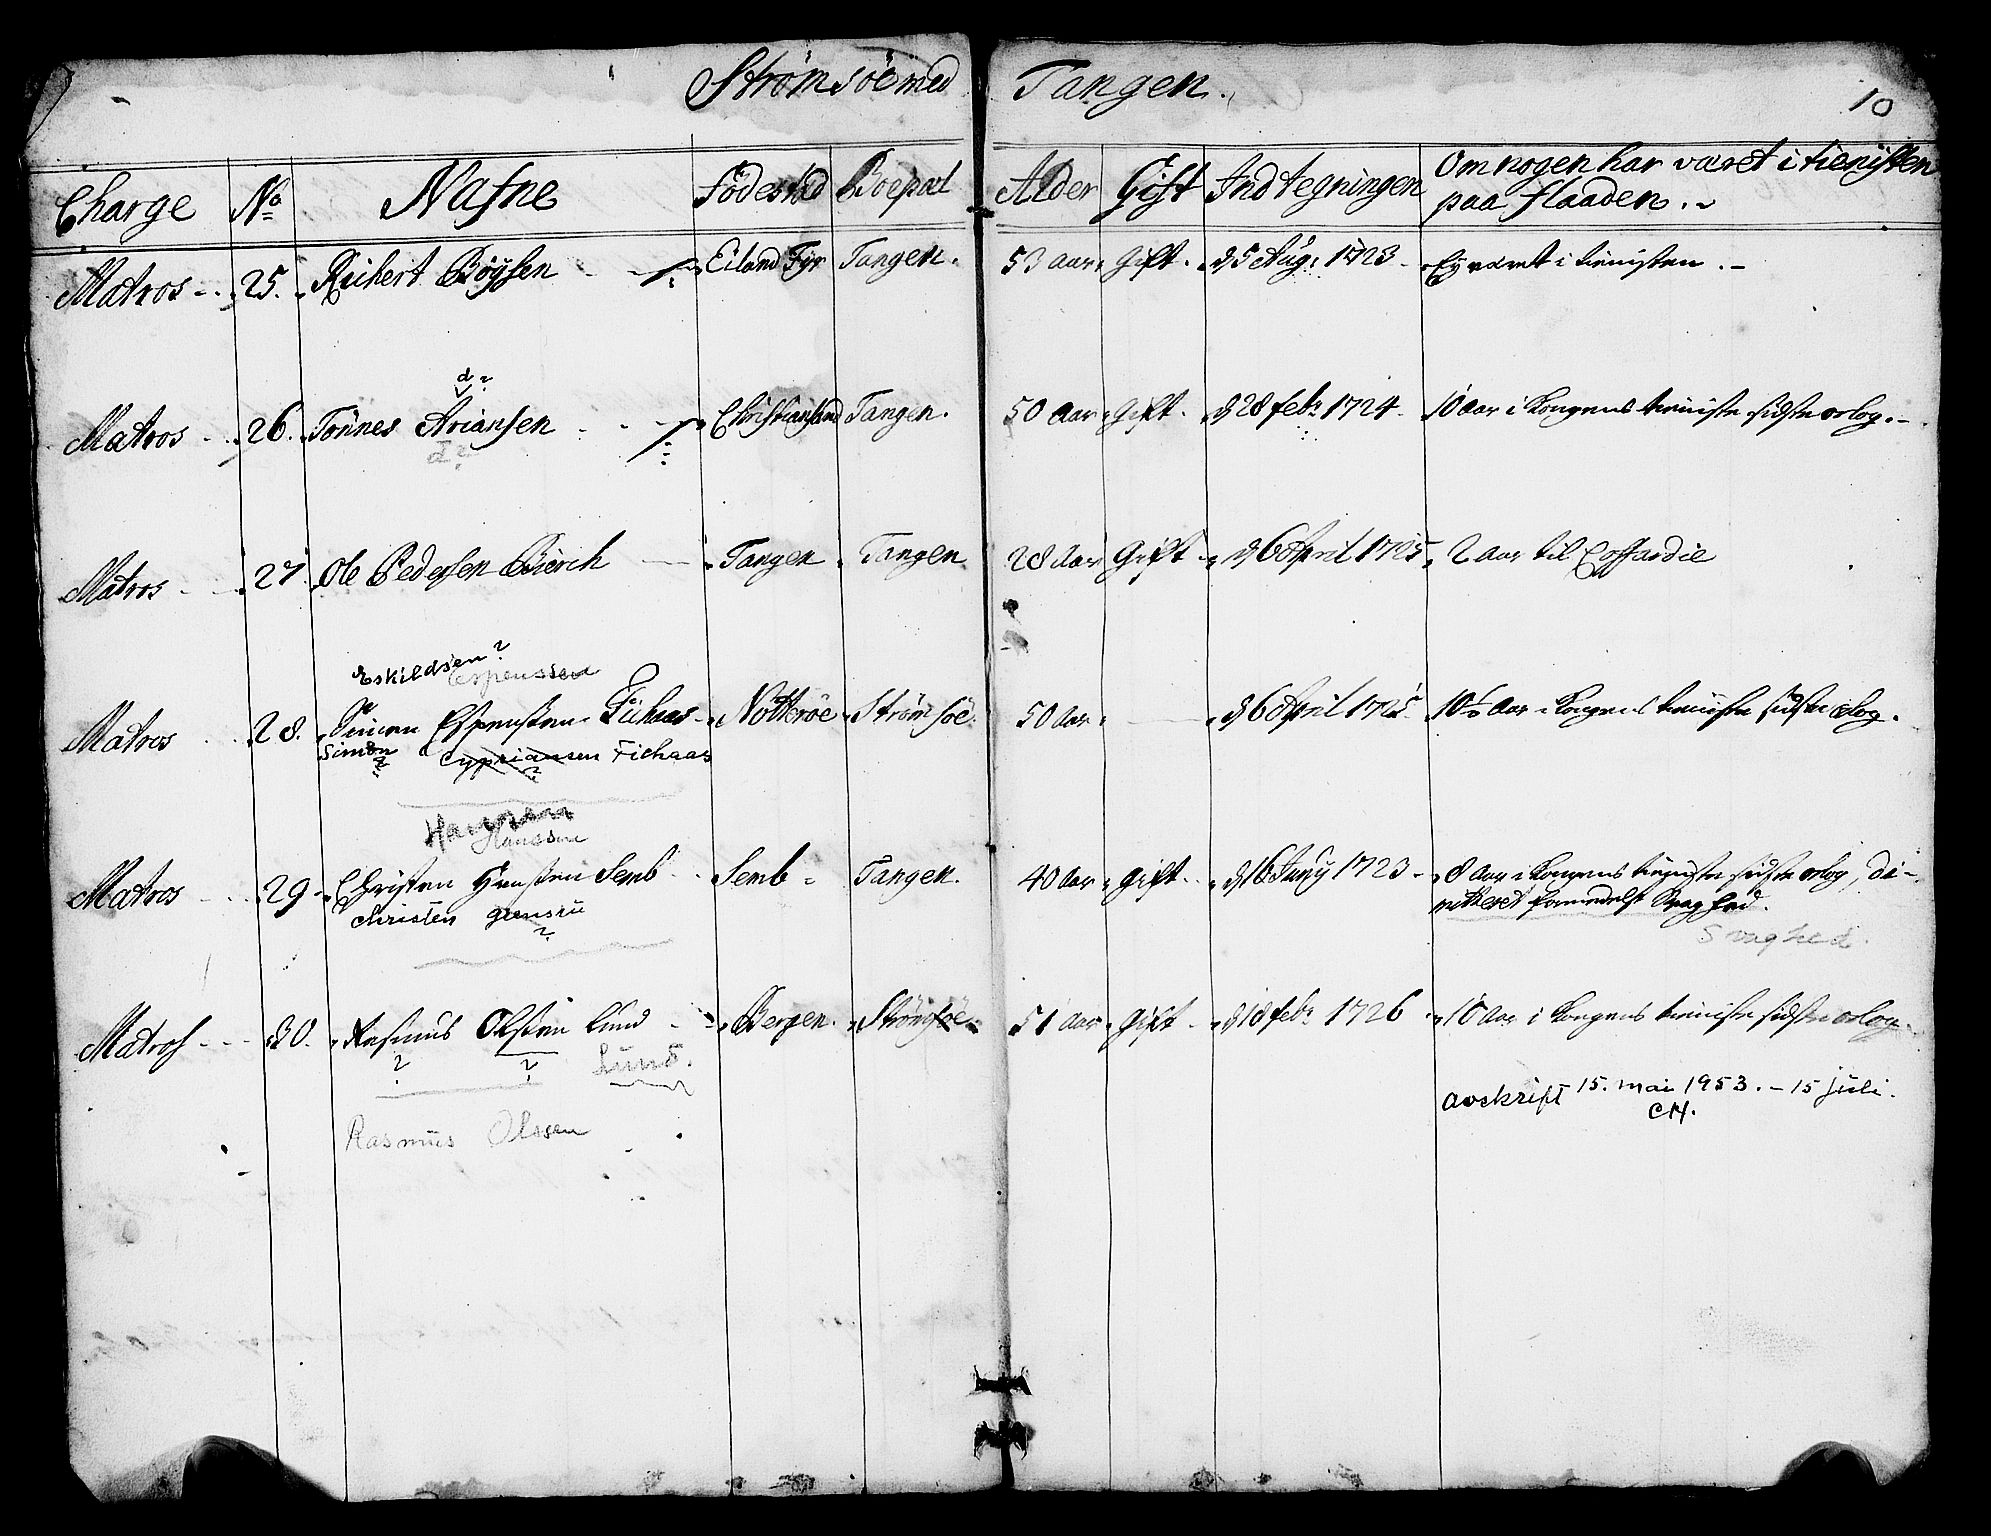 Strømsöe med Tangen.
10
Charge No Nafne Födestæd Boepæl Alder Gift Indtegningen Om nogen har været i tienisten
paa flaaden.
Matros 25. Richert Böysen Eiland Fyr Tangen. 53 aar, Gift. d 5 Aug: 1723 Ey været i tienisten.
d?
Matros 26. Tönnes Ariansen Christiansand Tangen. 50 Aar Gift. d 28 febr 1724 10 aar i Kongens tieniste sidste orlog.
d?
Matros 27. Ole Pedersen Bierch Tangen Tangen 28 Aar Gift d 6 April 1725 2 aar til Coffardie
Eskildsen? Espenssen
Matros 28. Simon Espensen Fichaas Nötteröe Strømsöe. 50 Aar, d 6 April 1725 10 Aar i Kongens tieniste sidste orlog.
Simon ? Cypriansen Fichaas
?
Hansen
Hanssen
Matros 29 Christen Hansen Semb Semb Tangen. 40 Aar Gift. d 16 Juny 1723 8 Aar i Kongens tieniste sidste orlog, di-
mitteret formedelst Svaghed.
Christen Jensen
?
Svaghed.
Matros 30. Rasmus Olsen Lund Bergen. Strömsöe 51 aar Gift d 18 febr 1726 10 Aar i Kongens tieniste sidste orlog.
? ? Lund.
avskrift 15. mai 1953. – 15 juli.
CH.
Rasmus Olssen